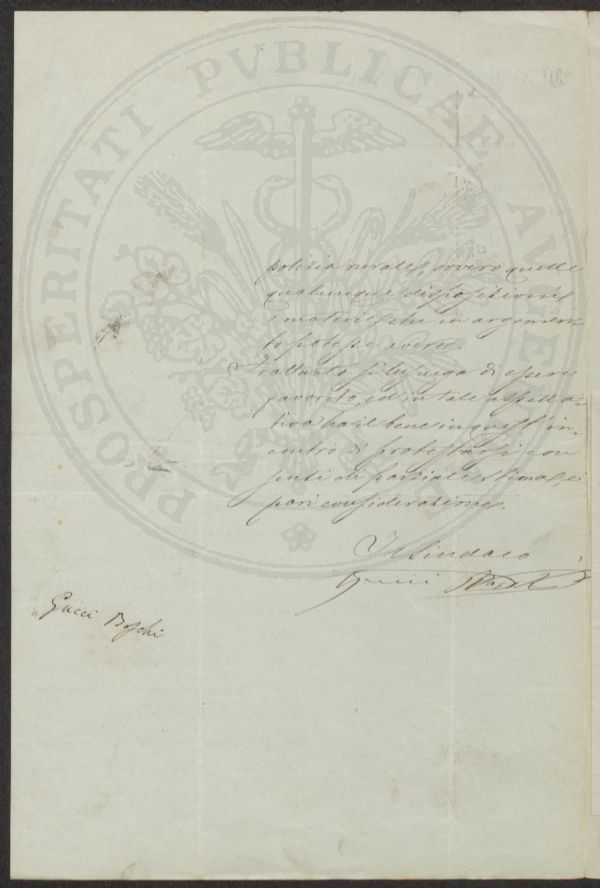 PROSPERITATI PVBLICAE AVGENDAE
polizia rurale, ovvero quelle
qualunque disposizioni
e materie che in argomen-
to potesse avere.
Frattanto si lusinga di essere
favorito, ed in tale aspetta-
tiva ha il bene in quest'in-
contro di protestarsi con
sensi di parziale stima, e
pari considerazione.
Il Sindaco
Gucci Boschi
Gucci Boschi